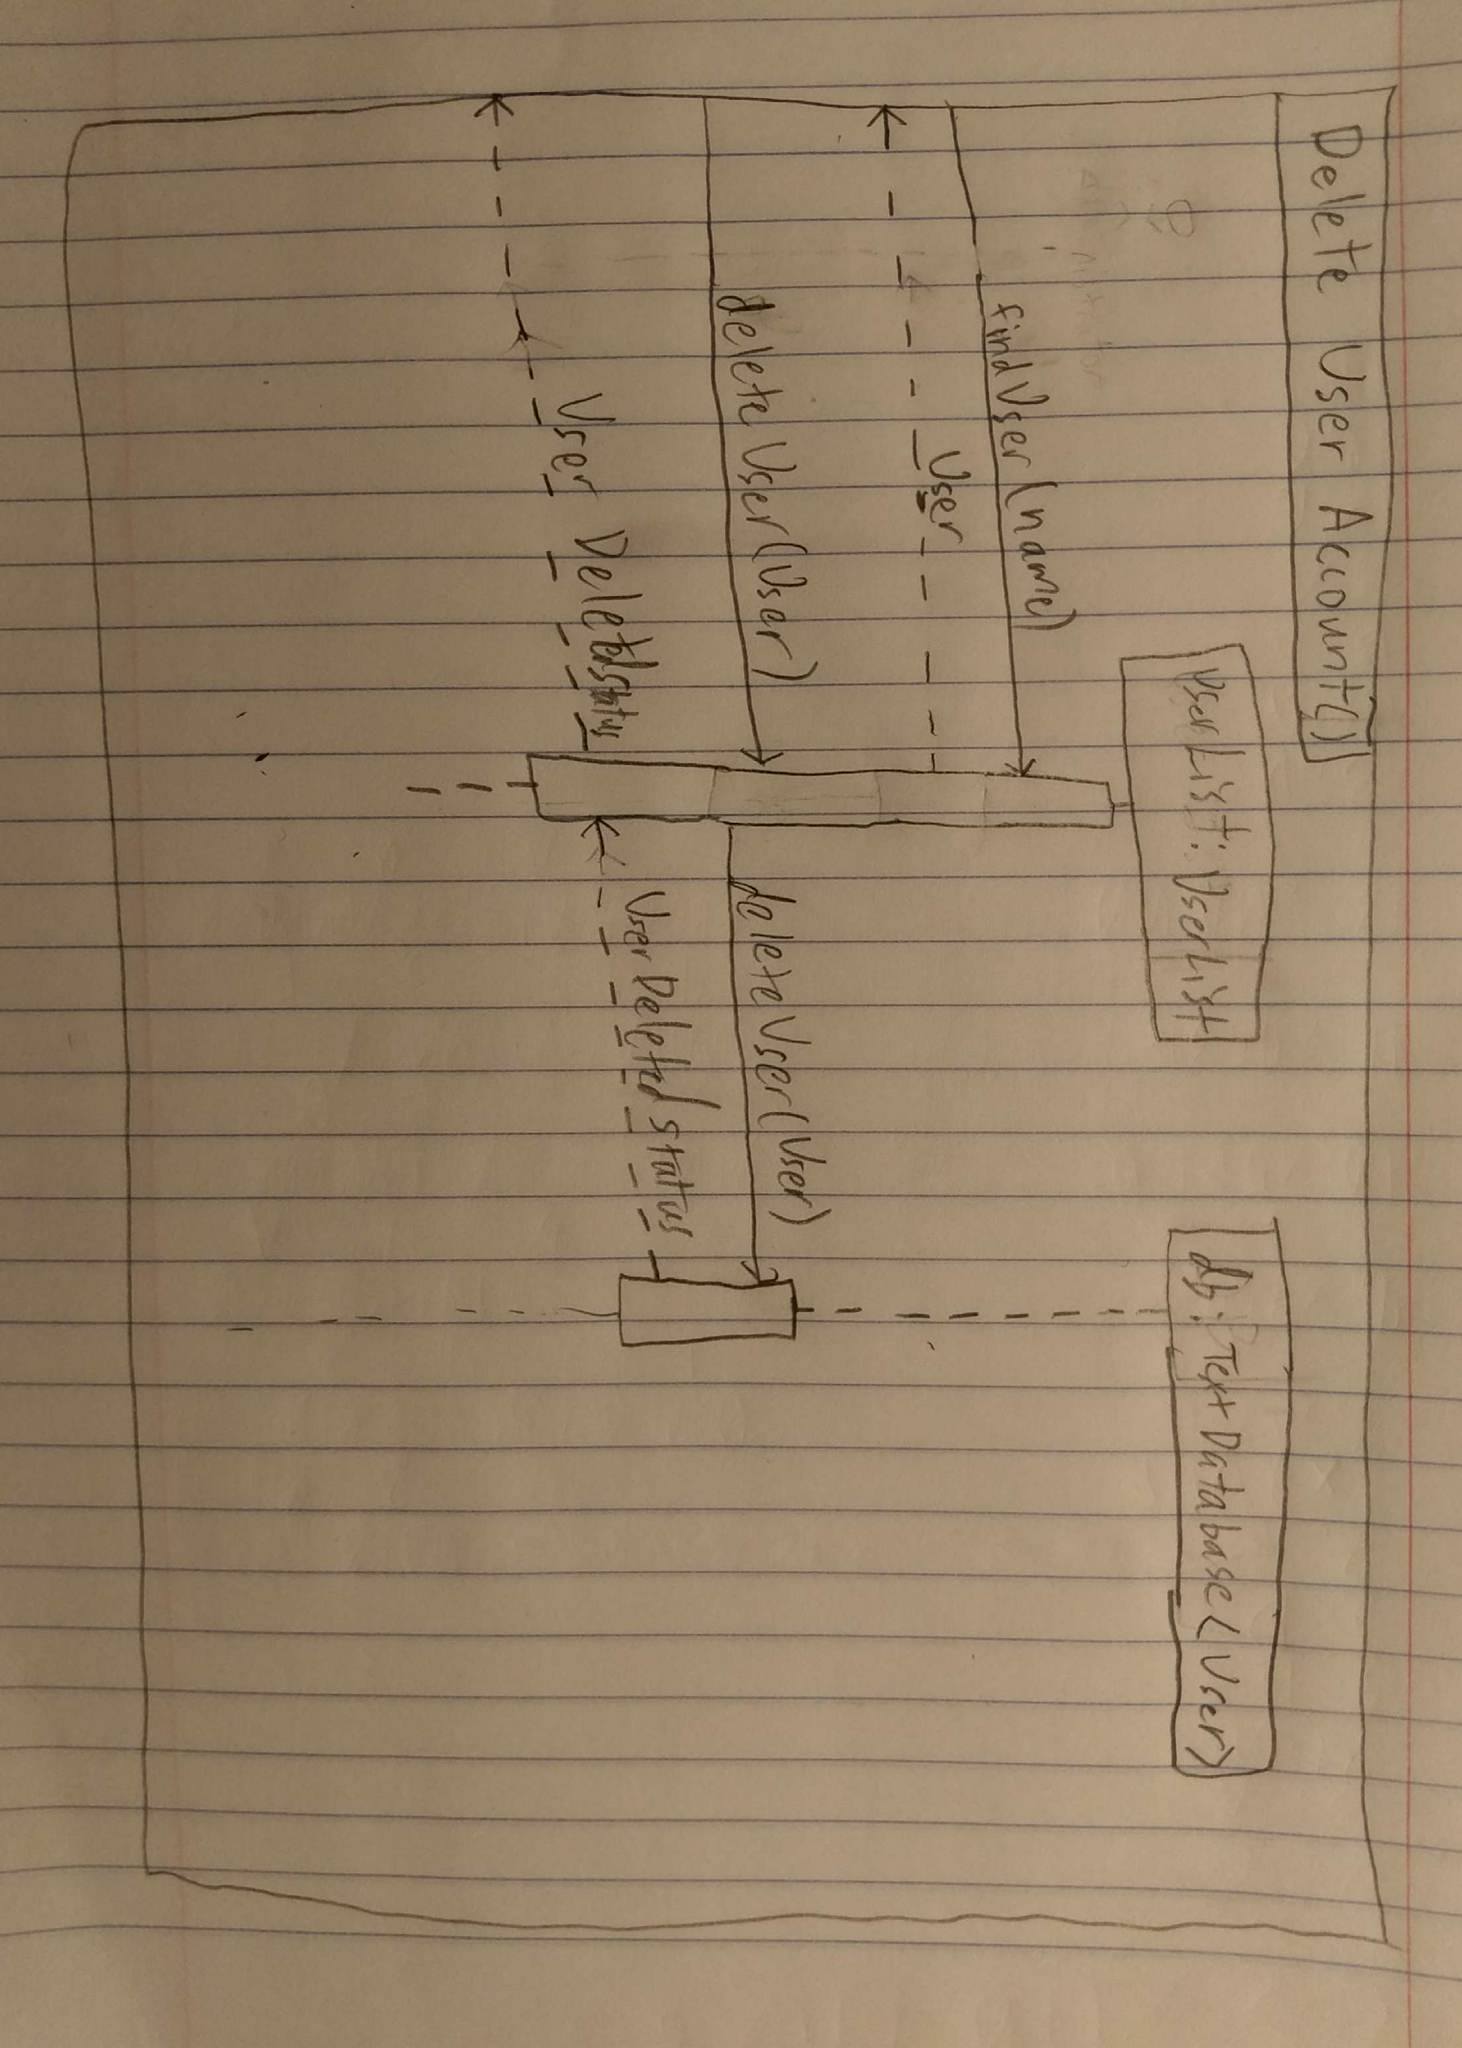 Delete User Account()
UserList: UserList
db: TextDatabase<User>
findUser(name)
User
deleteUser(User)
deleteUser(User)
UserDeletedstatus
User Deletedstatus